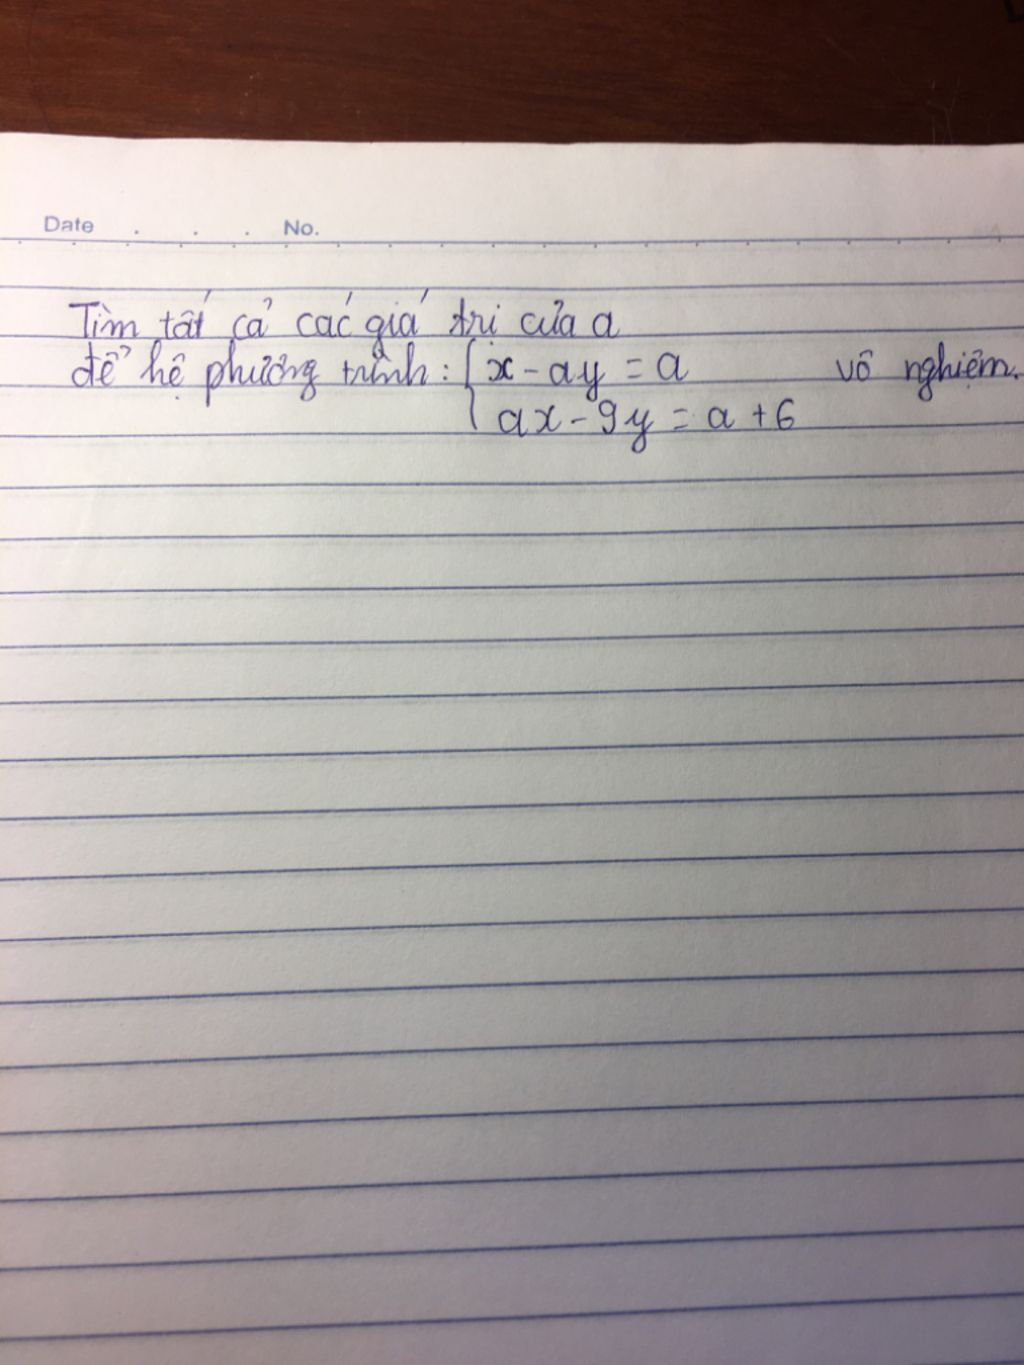 Date . . . No.
Tìm tất cả các giá trị của a
để hệ phương trình: { x - ay = a vô nghiệm.
ax - 9y = a + 6